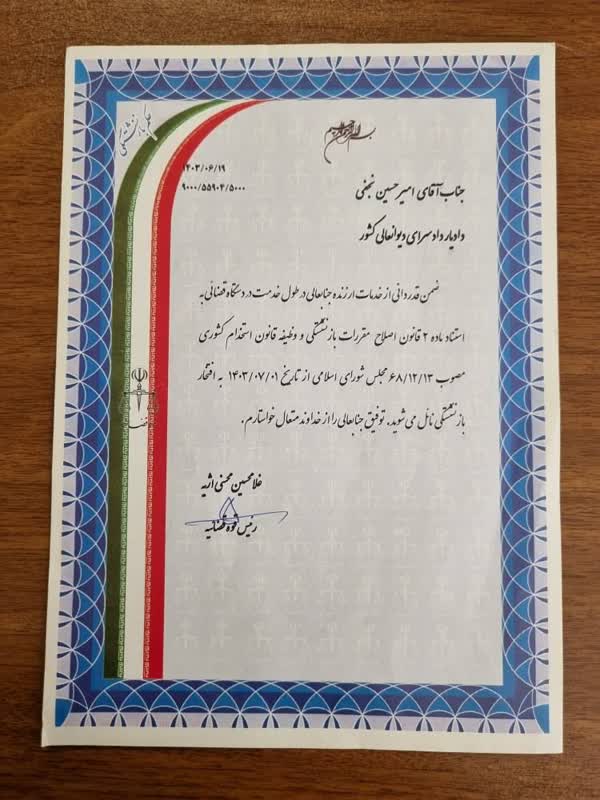 حکم بازنشستگی
بسم الله الرحمن الرحیم
۱۴۰۳/۰۶/۱۹
۹۰۰۰/۵۵۹۰۴/۵۰۰۰
جناب آقای امیرحسین نجفی
دادیار دادسرای دیوانعالی کشور
ضمن قدردانی از خدمات ارزنده جنابعالی در طول خدمت در دستگاه قضائی به
استناد ماده ۲ قانون اصلاح مقررات بازنشستگی و وظیفه قانون استخدام کشوری
مصوب ۶۸/۱۲/۱۳ مجلس شورای اسلامی از تاریخ ۱۴۰۳/۰۷/۰۱ به افتخار
بازنشستگی نائل می شوید. توفیق جنابعالی را از خداوند متعال خواستارم.
غلامحسین محسنی اژیه
رئیس قوه قضائیه